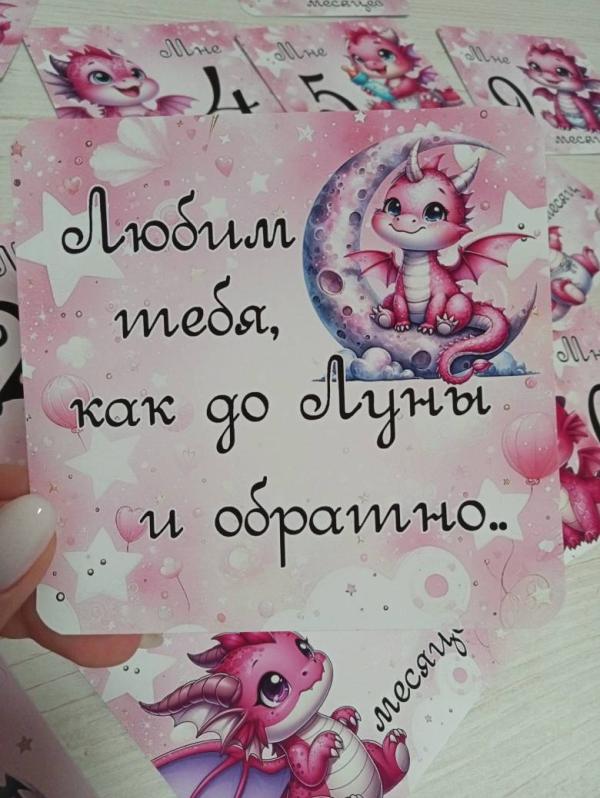 месяцев
Мне
4
Мне
5
Мне
9
месяц
Любим
тебя,
как до Луны
и обратно..
месяц
Мн
месяц